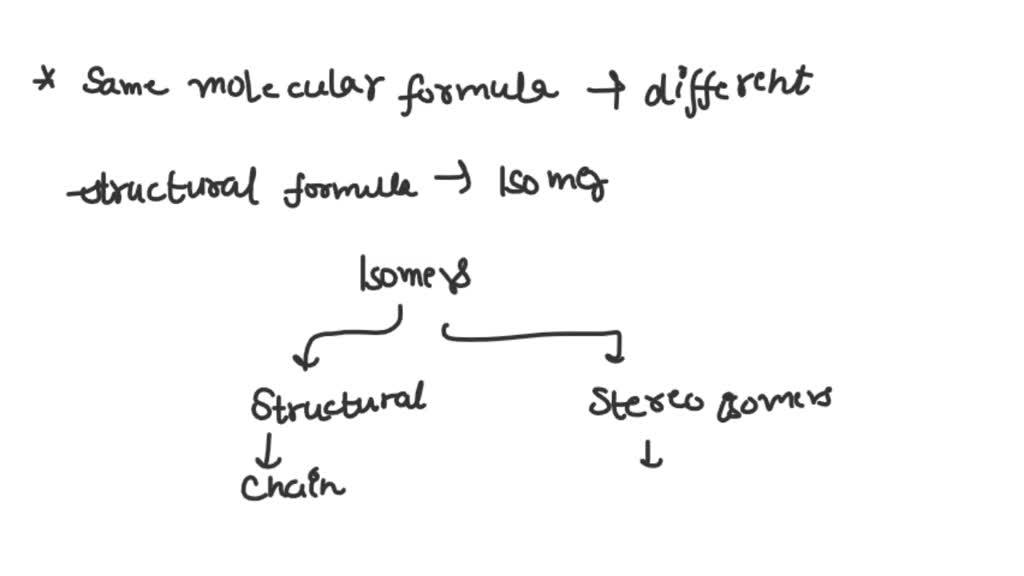 * Same molecular formula → different
structural formula →
Isomers
Structural Stereo isomers
↓ ↓
Chain